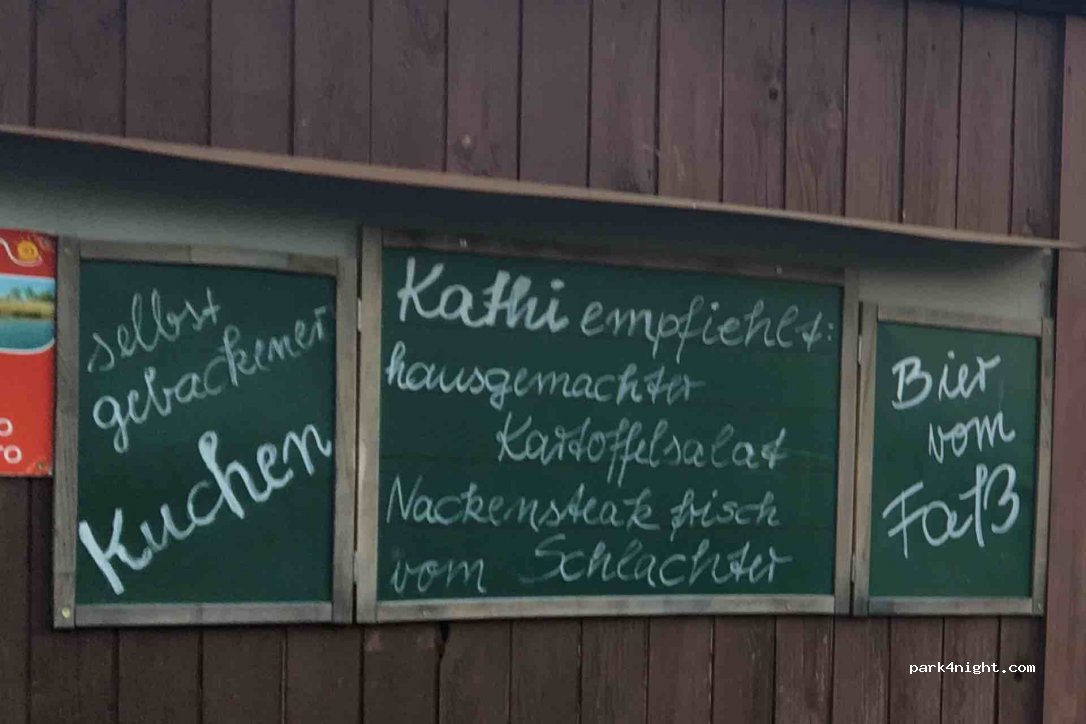 selbst
gebackener
Kuchen
Kathi empfiehlt:
hausgemachter
Kartoffelsalat
Nackensteak frisch
vom Schlachter
Bier
vom
Faß
park4night.com